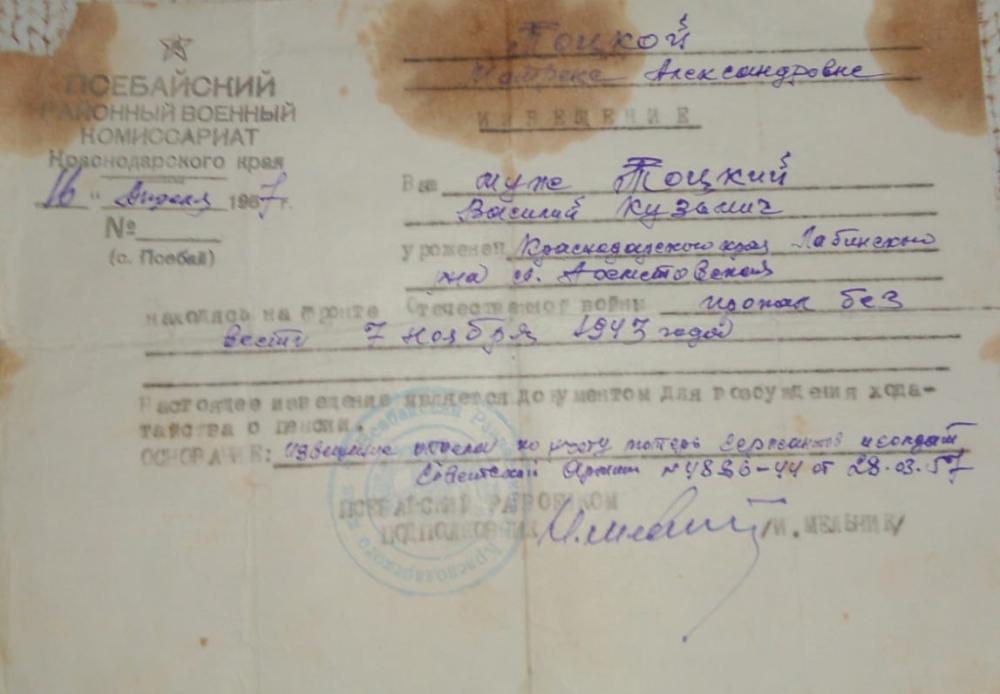 ПСЕБАЙСКИЙ
РАЙОННЫЙ ВОЕННЫЙ
КОМИССАРИАТ
Краснодарского края
16 " Апреля 1957 г.
№
(с. Псебай)
Тоцкой
Александровне
ИЗВЕЩЕНИЕ
Ваш муж Тоцкий
Василий Кузьмич
уроженец Краснодарского края Лабинского
находясь на фронте Отечественной войны пропал без
вести 7 ноября 1943 года
Настоящее извещение является документом для возбуждения хода-
тайства о пенсии.
ОСНОВАНИЕ: извещение отдела по учету потерь сержантов и солдат
Советской Армии № 4836-44 от 28.03.57
ПСЕБАЙСКИЙ РАЙВОЕНКОМ
ПОДПОЛКОВНИК /И. МЕЛЬНИК/